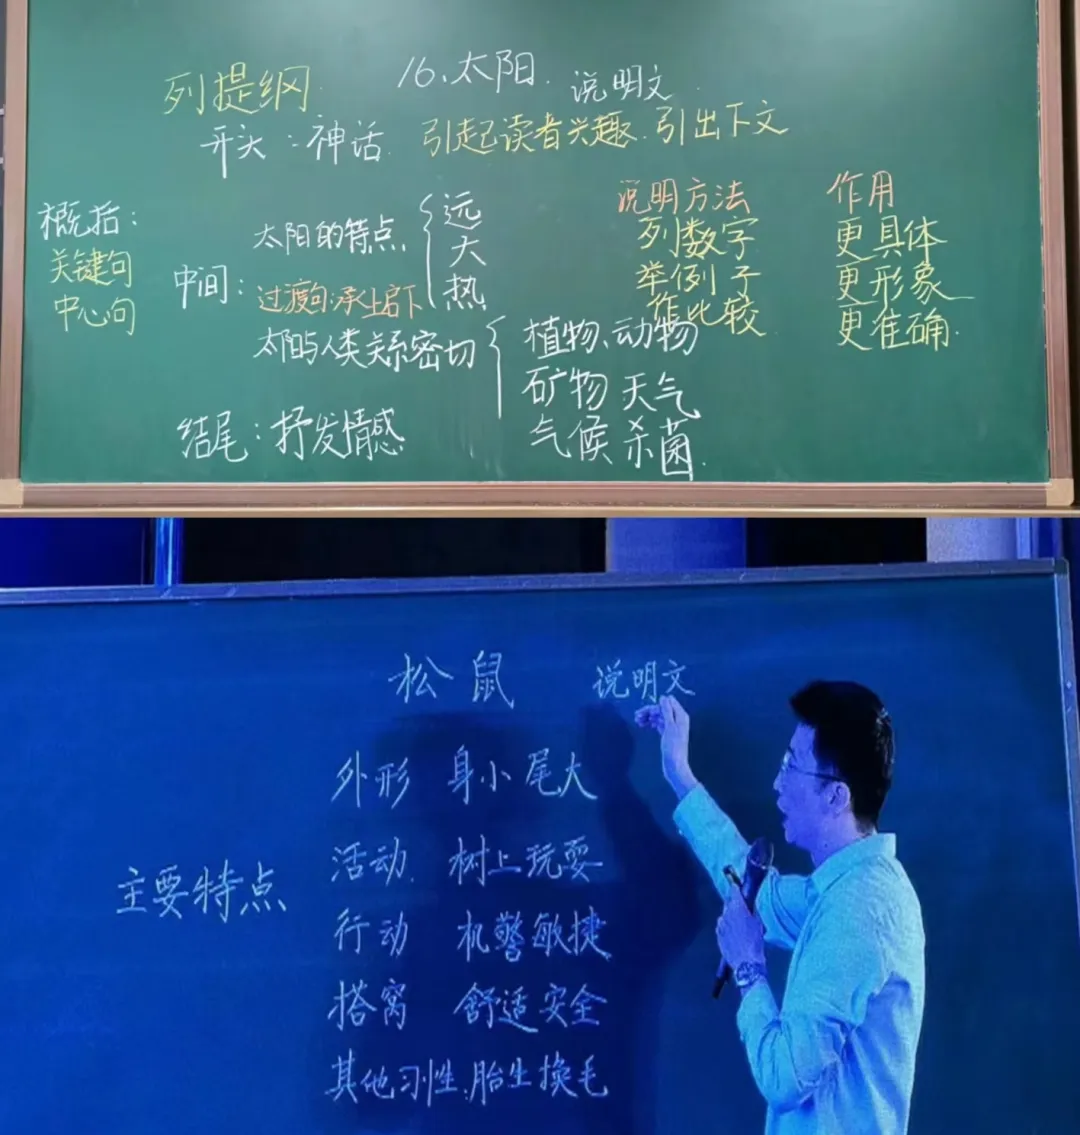 列提纲 16、太阳 说明文
开头：神话 引起读者兴趣 引出下文
概括：
关键句
中心句
中间：
太阳的特点
远
大
热
过渡句：承上启下
太阳与人类关系密切
植物、动物
矿物 天气
气候 杀菌
结尾：抒发情感
说明方法
列数字
举例子
作比较
作用
更具体
更形象
更准确
松鼠 说明文
主要特点
外形 身小尾大
活动 树上玩耍
行动 机警敏捷
搭窝 舒适安全
其他习性：胎生换毛